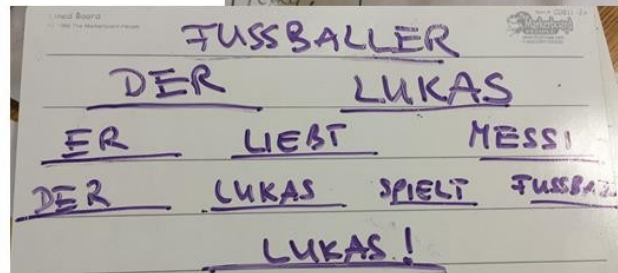 Lined Board
FUSSBALLER
DER LUKAS
ER LIEBT MESSI
DER LUKAS SPIELT FUSSBAL
LUKAS!